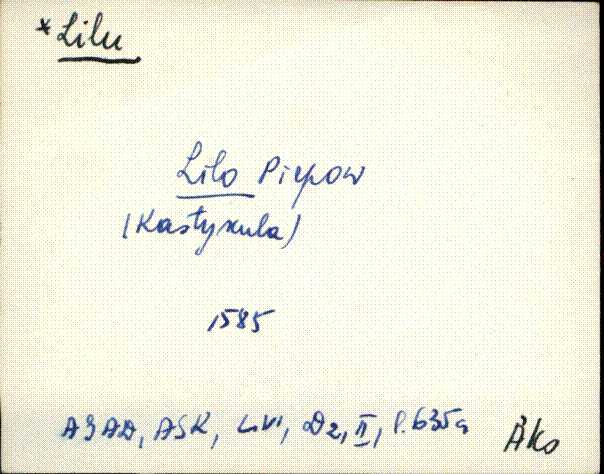 *Lilu
Lilo Piepow
(Kastyxula)
1585
AGAD, ASK, LVI, D2, II, l. 635a
ÄKo